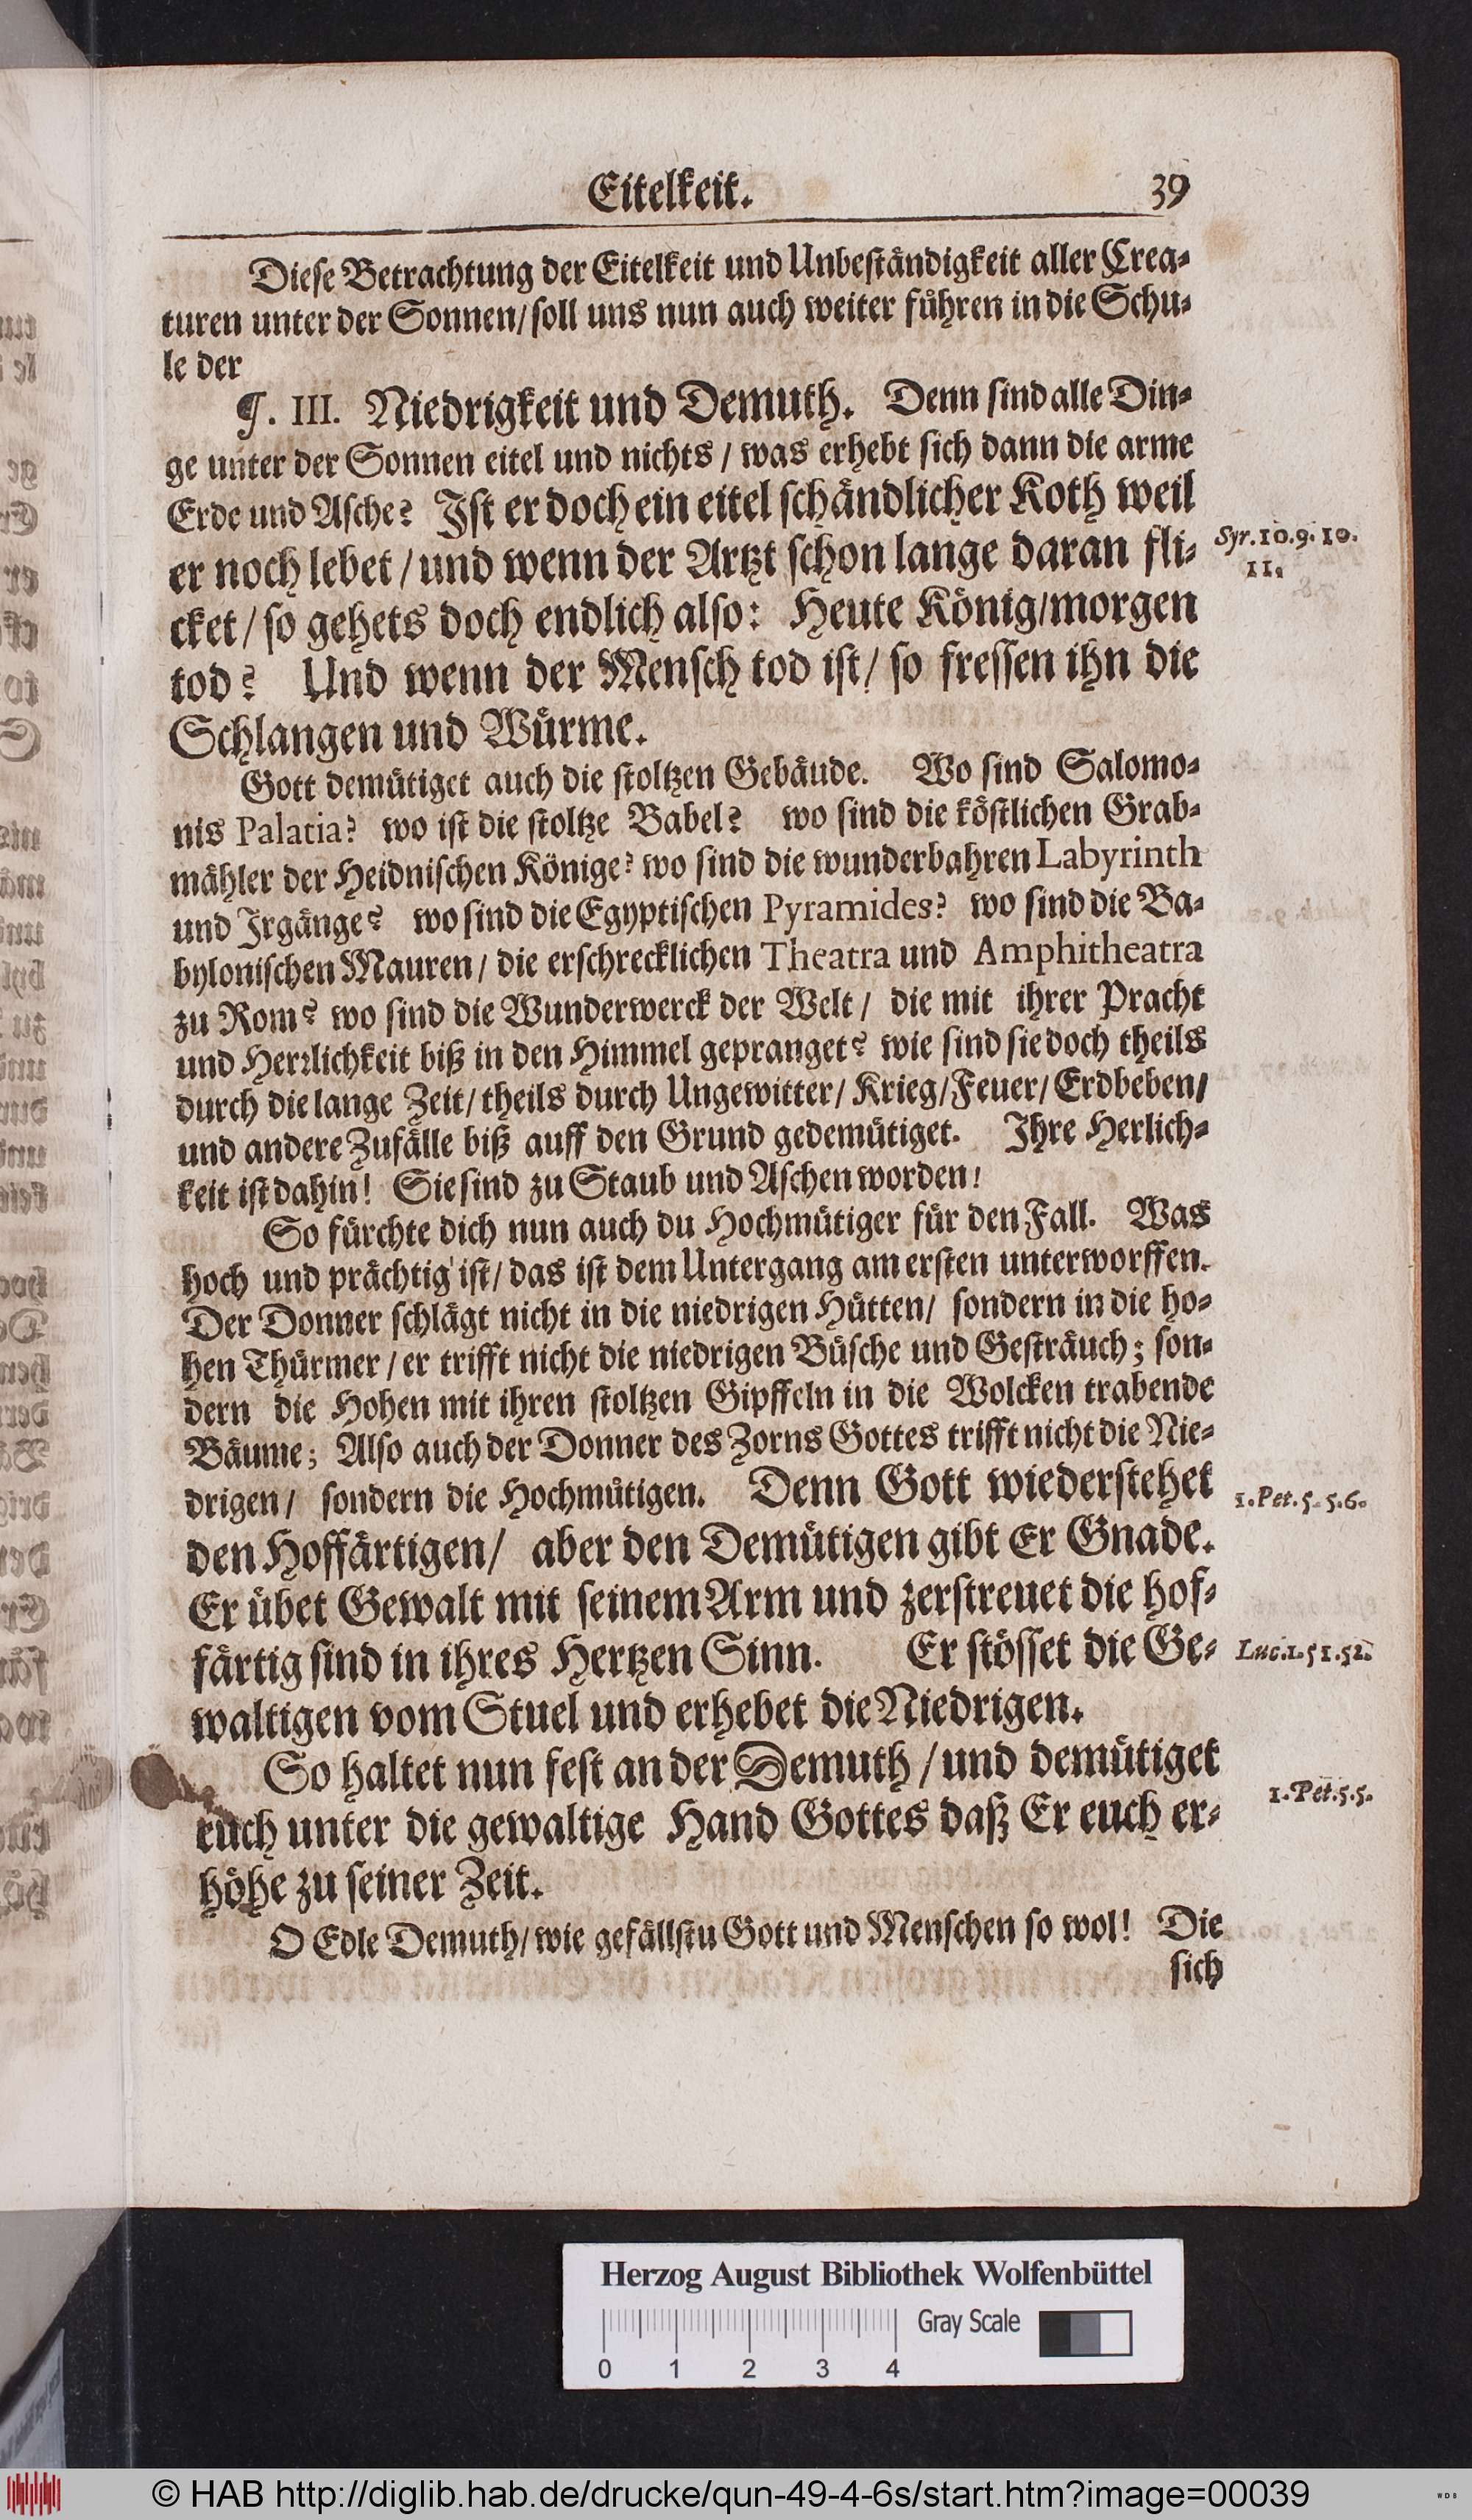 Eitelkeit. 39
Dieſe Betrachtung der Eitelkeit und Unbeſtåndigkeit aller Crea-
turen unter der Sonnen/ ſoll uns nun auch weiter fůhren in die Schu-
le der
¶. III. Niedrigkeit und Demuth. Denn ſind alle Din-
ge unter der Sonnen eitel und nichts / was erhebt ſich dann die arme
Erde und Aſche? Iſt er doch ein eitel ſchåndlicher Koth weil
er noch lebet / und wenn der Artzt ſchon lange daran fli-
Syr. 10. 9. 10.
11.
cket / ſo gehets doch endlich alſo: Heute Kőnig/morgen
tod? Und wenn der Menſch tod iſt/ ſo freſſen ihn die
Schlangen und Wůrme.
Gott demůtiget auch die ſtoltzen Gebåude. Wo ſind Salomo-
nis Palatia? wo iſt die ſtoltze Babel? wo ſind die kőſtlichen Grab-
måhler der Heidniſchen Kőnige? wo ſind die wunderbahren Labyrinth
und Irgånge? wo ſind die Egyptiſchen Pyramides? wo ſind die Ba-
byloniſchen Mauren/ die erſchrecklichen Theatra und Amphitheatra
zu Rom? wo ſind die Wunderwerck der Welt / die mit ihrer Pracht
und Herꝛlichkeit biß in den Himmel gepranget? wie ſind ſie doch theils
durch die lange Zeit/ theils durch Ungewitter/ Krieg/ Feuer/ Erdbeben/
und andere Zufålle biß auff den Grund gedemůtiget. Ihre Herlich-
keit iſt dahin! Sie ſind zu Staub und Aſchen worden!
So fůrchte dich nun auch du Hochmůtiger fůr den Fall. Was
hoch und pråchtig iſt/ das iſt dem Untergang am erſten unterworffen.
Der Donner ſchlågt nicht in die niedrigen Hůtten/ ſondern in die ho-
hen Thůrmer / er trifft nicht die niedrigen Bůſche und Geſtråuch; ſon-
dern die Hohen mit ihren ſtoltzen Gipffeln in die Wolcken trabende
Båume; Alſo auch der Donner des Zorns Gottes trifft nicht die Nie-
drigen/ ſondern die Hochmůtigen. Denn Gott wiederſtehet
1. Pet. 5. 5. 6.
den Hoffårtigen/ aber den Demůtigen gibt Er Gnade.
Er ůbet Gewalt mit ſeinem Arm und zerſtreuet die hof-
fårtig ſind in ihres Hertzen Sinn. Er ſtőſſet die Ge-
Luc. 1. 51. 52.
waltigen vom Stuel und erhebet die Niedrigen.
So haltet nun feſt an der Demuth / und demůtiget
1. Pet. 5. 5.
euch unter die gewaltige Hand Gottes daß Er euch er-
hőhe zu ſeiner Zeit.
O Edle Demuth/ wie gefållſtu Gott und Menſchen ſo wol! Die
ſich
Herzog August Bibliothek Wolfenbüttel
Gray Scale
0 1 2 3 4
© HAB http://diglib.hab.de/drucke/qun-49-4-6s/start.htm?image=00039
WDB